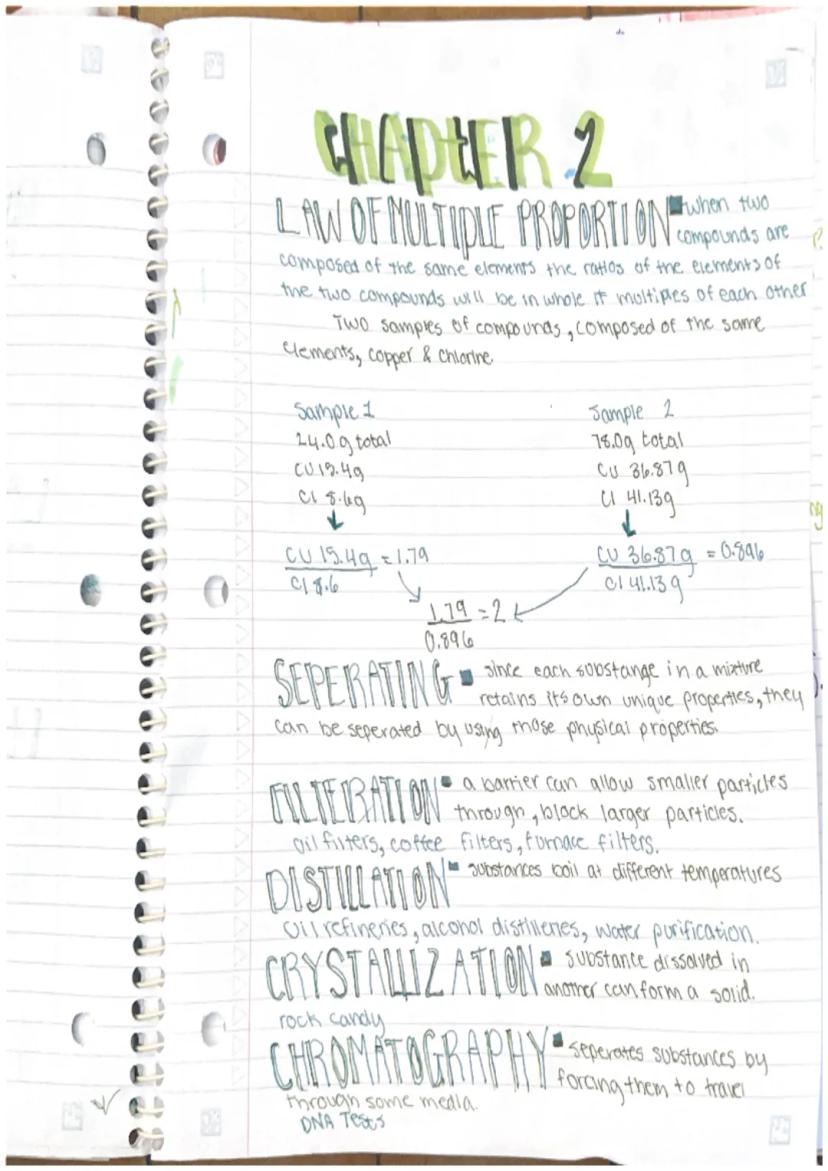 CHAPtER 2
LAW OF MULTIPLE PROPORTION ▪ when two
compounds are
composed of the same elements the ratios of the elements of
the two compounds will be in whole # multiples of each other
Two samples of compounds, composed of the same
elements, copper & chlorine
Sample 1 Sample 2
24.0g total 78.0g total
CU 15.4g CU 36.87g
Cl 8.6g Cl 41.13g
CU 15.4g = 1.79 CU 36.87g = 0.896
Cl 8.6 Cl 41.13g
1.79 = 2
0.896
SEPERATING ▪ since each substange in a mixture
retains its own unique properties, they
can be seperated by using those physical properties.
FILTERATION ▪ a barrier can allow smaller particles
through, block larger particles.
oil filters, coffee filters, furnace filters.
DISTILLATION ▪ substances boil at different temperatures
Oil refineries, alcohol distilleries, water purification.
CRYSTALLIZATION ▪ substance dissolved in
another can form a solid.
rock candy
CHROMATOGRAPHY ▪ seperates substances by
forcing them to travel
through some media.
DNA Tests